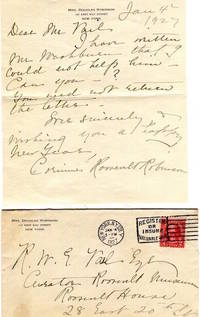 Mrs. Douglas Robinson
New York
Jan 4th
1927
Dear Mr Vail
I have written
Mr Washburn that I
could not help him -
Can you - ?
You need not return
the letter -
Sincerely
Wishing you a happy
New Year,
Corinne Roosevelt Robinson
Mrs. Douglas Robinson
New York
NEW YORK, N.Y.
JAN 4
1927
REGISTER
OR
INSURE
VALUABLE
R. W. G. Vail Esq
Curator Roosevelt Museum
Roosevelt House
28 East 20th St